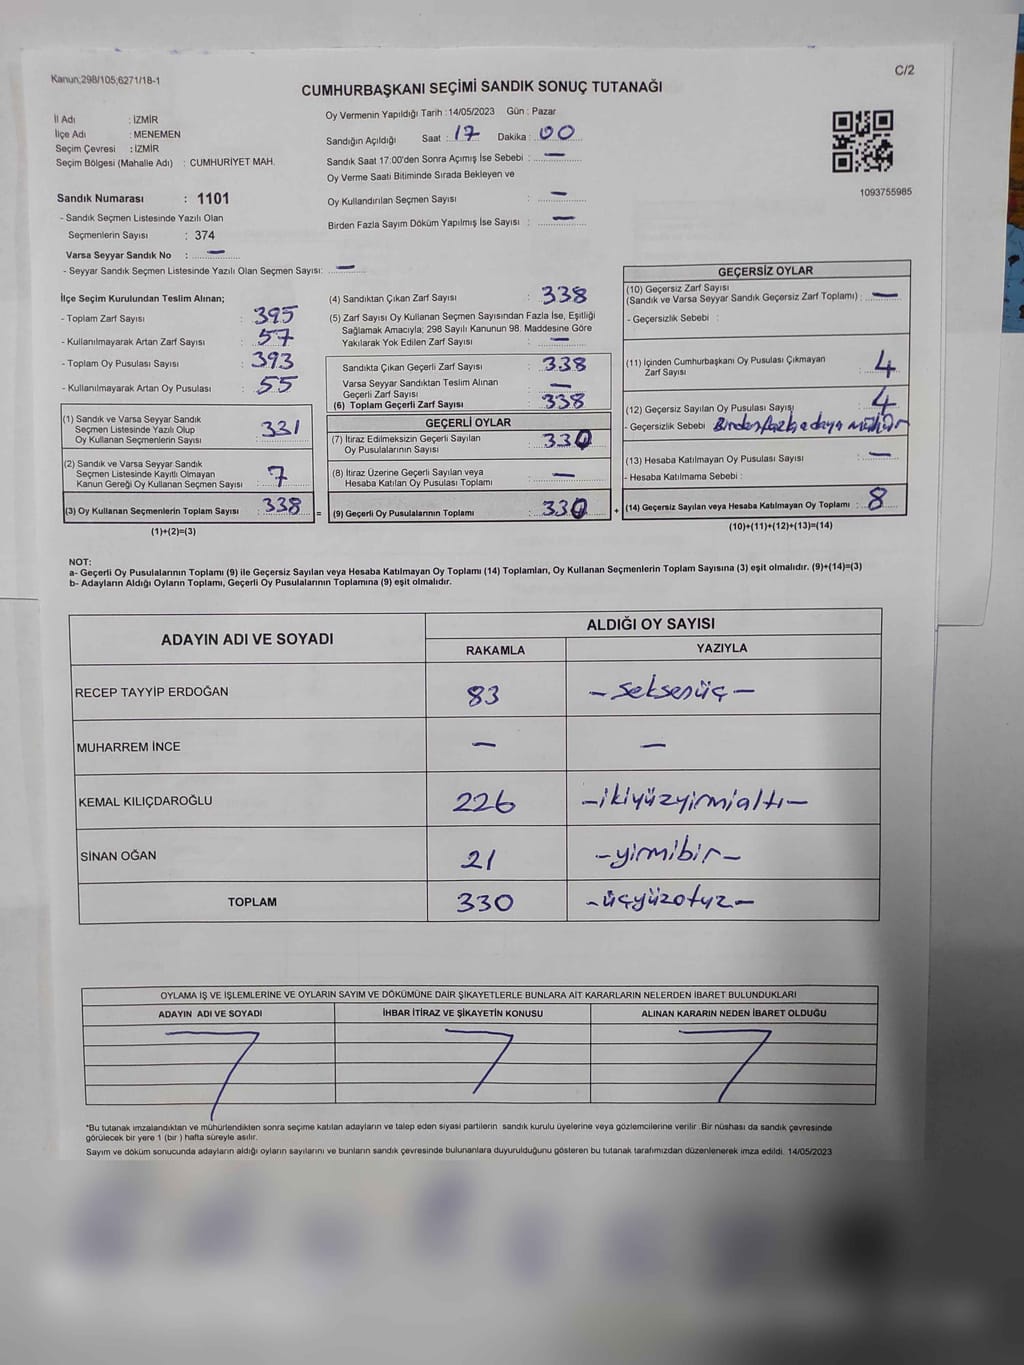 Kanun;298/105;6271/18-1
C/2
CUMHURBAŞKANI SEÇİMİ SANDIK SONUÇ TUTANAĞI
İl Adı : İZMİR
İlçe Adı : MENEMEN
Seçim Çevresi : İZMİR
Seçim Bölgesi (Mahalle Adı) : CUMHURİYET MAH.
Sandık Numarası : 1101
- Sandık Seçmen Listesinde Yazılı Olan
Seçmenlerin Sayısı : 374
Varsa Seyyar Sandık No : —
- Seyyar Sandık Seçmen Listesinde Yazılı Olan Seçmen Sayısı: —
Oy Vermenin Yapıldığı Tarih : 14/05/2023 Gün : Pazar
Sandığın Açıldığı Saat : 17 Dakika : 00
Sandık Saat 17:00'den Sonra Açımış İse Sebebi : —
Oy Verme Saati Bitiminde Sırada Bekleyen ve
Oy Kullandırılan Seçmen Sayısı : —
Birden Fazla Sayım Döküm Yapılmış İse Sayısı : —
1093755985
İlçe Seçim Kurulundan Teslim Alınan;
- Toplam Zarf Sayısı : 395
- Kullanılmayarak Artan Zarf Sayısı : 57
- Toplam Oy Pusulası Sayısı : 393
- Kullanılmayarak Artan Oy Pusulası : 55
(1) Sandık ve Varsa Seyyar Sandık
Seçmen Listesinde Yazılı Olup
Oy Kullanan Seçmenlerin Sayısı : 331
(2) Sandık ve Varsa Seyyar Sandık
Seçmen Listesinde Kayıtlı Olmayan
Kanun Gereği Oy Kullanan Seçmen Sayısı : 7
(3) Oy Kullanan Seçmenlerin Toplam Sayısı : 338 =
(1)+(2)=(3)
(4) Sandıktan Çıkan Zarf Sayısı : 338
(5) Zarf Sayısı Oy Kullanan Seçmen Sayısından Fazla İse, Eşitliği
Sağlamak Amacıyla; 298 Sayılı Kanunun 98. Maddesine Göre
Yakılarak Yok Edilen Zarf Sayısı : —
Sandıkta Çıkan Geçerli Zarf Sayısı : 338
Varsa Seyyar Sandıktan Teslim Alınan
Geçerli Zarf Sayısı : —
(6) Toplam Geçerli Zarf Sayısı : 338
GEÇERLİ OYLAR
(7) İtiraz Edilmeksizin Geçerli Sayılan
Oy Pusulalarının Sayısı : 330
(8) İtiraz Üzerine Geçerli Sayılan veya
Hesaba Katılan Oy Pusulası Toplamı : —
(9) Geçerli Oy Pusulalarının Toplamı : 330 +
GEÇERSİZ OYLAR
(10) Geçersiz Zarf Sayısı
(Sandık ve Varsa Seyyar Sandık Geçersiz Zarf Toplamı) : —
- Geçersizlik Sebebi :
(11) İçinden Cumhurbaşkanı Oy Pusulası Çıkmayan
Zarf Sayısı : 4
(12) Geçersiz Sayılan Oy Pusulası Sayısı : 4
- Geçersizlik Sebebi Birden fazla adaya mühür
(13) Hesaba Katılmayan Oy Pusulası Sayısı : —
- Hesaba Katılmama Sebebi :
(14) Geçersiz Sayılan veya Hesaba Katılmayan Oy Toplamı : 8
(10)+(11)+(12)+(13)=(14)
NOT:
a- Geçerli Oy Pusulalarının Toplamı (9) ile Geçersiz Sayılan veya Hesaba Katılmayan Oy Toplamı (14) Toplamları, Oy Kullanan Seçmenlerin Toplam Sayısına (3) eşit olmalıdır. (9)+(14)=(3)
b- Adayların Aldığı Oyların Toplamı, Geçerli Oy Pusulalarının Toplamına (9) eşit olmalıdır.
ADAYIN ADI VE SOYADI ALDIĞI OY SAYISI
RAKAMLA YAZIYLA
RECEP TAYYİP ERDOĞAN 83 – seksenüç –
MUHARREM İNCE — —
KEMAL KILIÇDAROĞLU 226 – ikiyüzyirmialtı –
SİNAN OĞAN 21 – yirmibir –
TOPLAM 330 – üçyüzotuz –
OYLAMA İŞ VE İŞLEMLERİNE VE OYLARIN SAYIM VE DÖKÜMÜNE DAİR ŞİKAYETLERLE BUNLARA AİT KARARLARIN NELERDEN İBARET BULUNDUKLARI
ADAYIN ADI VE SOYADI İHBAR İTİRAZ VE ŞİKAYETİN KONUSU ALINAN KARARIN NEDEN İBARET OLDUĞU
*Bu tutanak imzalandıktan ve mühürlendikten sonra seçime katılan adayların ve talep eden siyasi partilerin sandık kurulu üyelerine veya gözlemcilerine verilir. Bir nüshası da sandık çevresinde
görülecek bir yere 1 (bir ) hafta süreyle asılır.
Sayım ve döküm sonucunda adayların aldığı oyların sayılarını ve bunların sandık çevresinde bulunanlara duyurulduğunu gösteren bu tutanak tarafımızdan düzenlenerek imza edildi. 14/05/2023